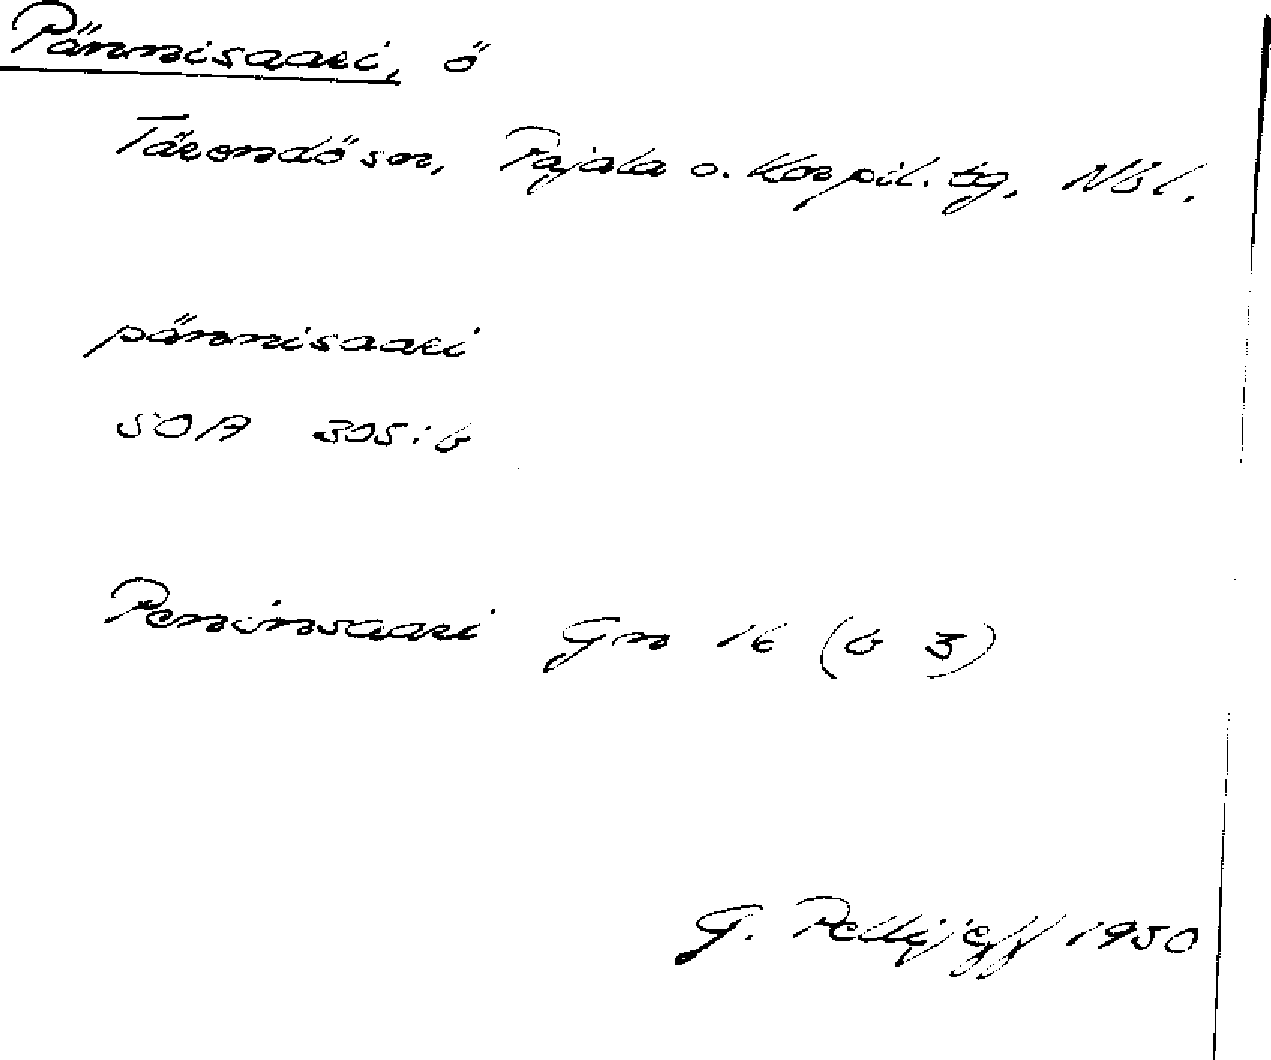 Pännisaari, ö
Tärendö sn, Pajala o. Korpil. tg, Nbl.
pännisaari
SOA 305:6
Peninsaari Gm 16 (6 3)
G. Pellijeff 1950